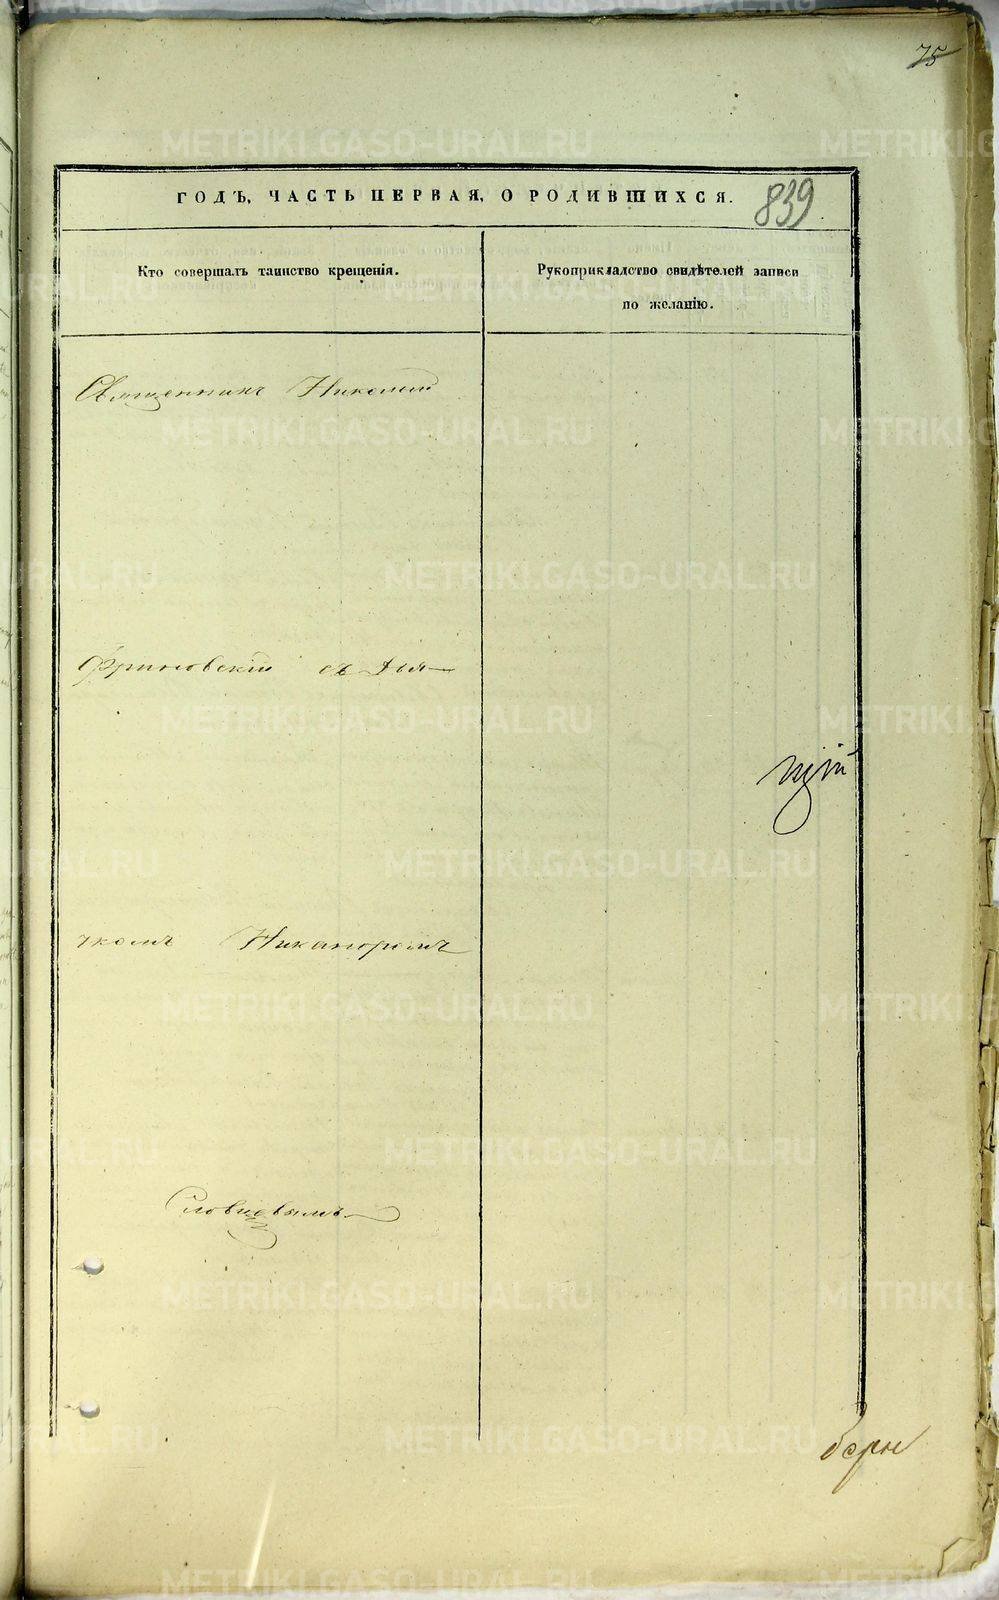 75
ГОДЪ, ЧАСТЬ ПЕРВАЯ, О РОДИВШИХСЯ.
839
Кто совершалъ таинство крещенія.
Рукоприкладство свидѣтелей записи
по желанію.
Священникъ Николай
Фриновскій съ Дья-
щій
чкомъ Никаноромъ
Словцевымъ
METRIKI.GASO-URAL.RU